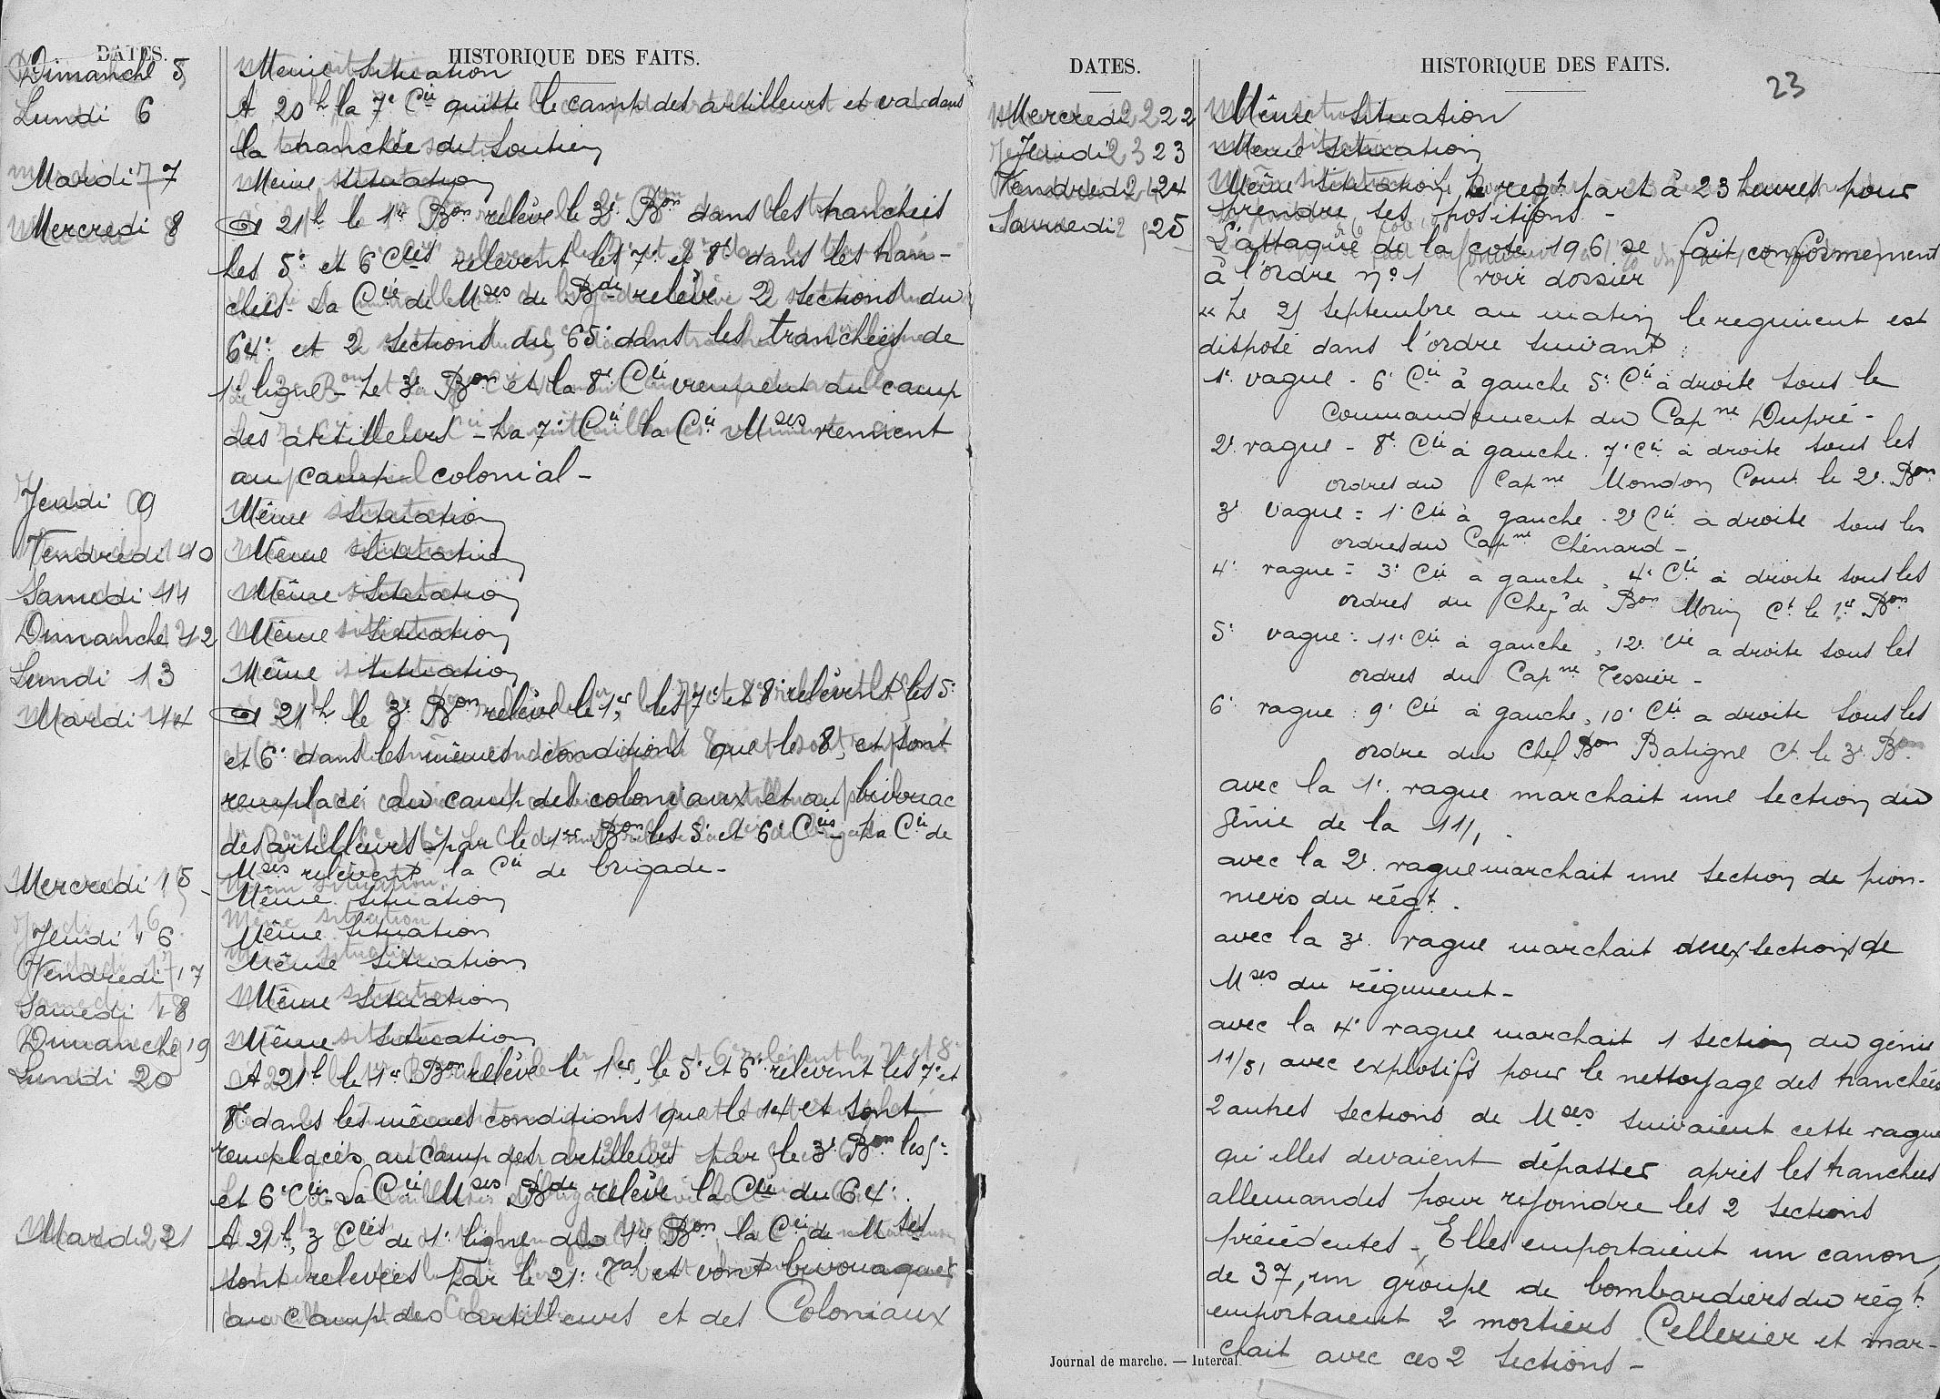 DATES.
HISTORIQUE DES FAITS.
Dimanche 5 Même situation
Lundi 6 A 20h la 7e Cie quitte le camp des artilleurs et va dans
la tranchée du soutien
Mardi 7 Même situation
Mercredi 8 A 21h le 1er Bon relève le 3e Bon dans les tranchées
les 5e et 6e Cies relèvent les 7e et 8e dans les tran-
chées - La Cie de Mses de Bde relève 2 sections du
64e et 2 sections du 65e dans les tranchées de
1e ligne - Le 3e Bon et la 8e Cie viennent au camp
des artilleurs - La 7e Cie la Cie Mses viennent
au camp colonial -
Jeudi 9 Même situation
Vendredi 10 Même situation
Samedi 11 Même situation
Dimanche 12 Même situation
Lundi 13 Même situation
Mardi 14 A 21h le 3e Bon relève le 1er, les 7e et 8e relèvent les 5e
et 6e dans les mêmes conditions que le 8, et sont
remplacé au camp des coloniaux et au bivouac
des artilleurs par le 1er Bon les 5e et 6e Cies - La Cie de
Mses relèvent la Cie de brigade -
Mercredi 15 Même situation
Jeudi 16 Même situation
Vendredi 17 Même situation
Samedi 18 Même situation
Dimanche 19 Même situation
Lundi 20 A 21h le 1er Bon relève le 1er, le 5e et 6e relèvent les 7e et
8e dans les mêmes conditions que le 14 et sont
remplacés au camp des artilleurs par le 3e Bon les 5e
et 6e Cie - La Cie Mses Bde relève la Cie du 64e.
Mardi 21 A 21h, 3 Cies de 1e ligne du 1er Bon la Cie de Mses
sont relevées par le 21e et vont bivouaquer
au camp des artilleurs et des Coloniaux
DATES.
HISTORIQUE DES FAITS.
23
Mercredi 22 Même situation
Jeudi 23 Même situation
Vendredi 24 Même situation, le regt part à 23 heures pour
prendre ses positions -
Samedi 25 L'attaque de la cote 196 se fait conformement
à l'ordre n° 1 (voir dossier
"Le 25 septembre au matin le regiment est
disposé dans l'ordre suivant :
1e vague - 6e Cie à gauche 5e Cie à droite sous le
commandement du Capne Dupré -
2e vague - 8e Cie à gauche. 7e Cie à droite sous les
ordres du Capne Mondon Comt le 2e Bon
3e vague = 1e Cie à gauche. 2e Cie à droite sous les
ordres du Capne Chénard -
4e vague = 3e Cie à gauche, 4e Cie à droite sous les
ordres du Chef de Bon Morin Ct le 1er Bon
5e vague : 11e Cie à gauche, 12e Cie a droite sous les
ordres du Capne Tessier -
6e vague : 9e Cie à gauche, 10e Cie a droite sous les
ordre du Chef Bon Batigne Ct le 3e Bon
avec la 1e vague marchait une section du
génie de la 11/
avec la 2e vague marchait une section de pion-
niers du régt.
avec la 3e vague marchait deux sections de
Mses du régiment -
avec la 4e vague marchait 1 section du génie
11/51 avec explosifs pour le nettoyage des tranchées
2 autres sections de Mses suivaient cette vague
qu'elles devaient dépasser après les tranchées
allemandes pour rejoindre les 2 sections
précédentes - Elles emportaient un canon
de 37, un groupe de bombardiers du régt
emportaient 2 mortiers Cellerier et mar-
chait avec ces 2 sections -
Journal de marche. — Intercal.